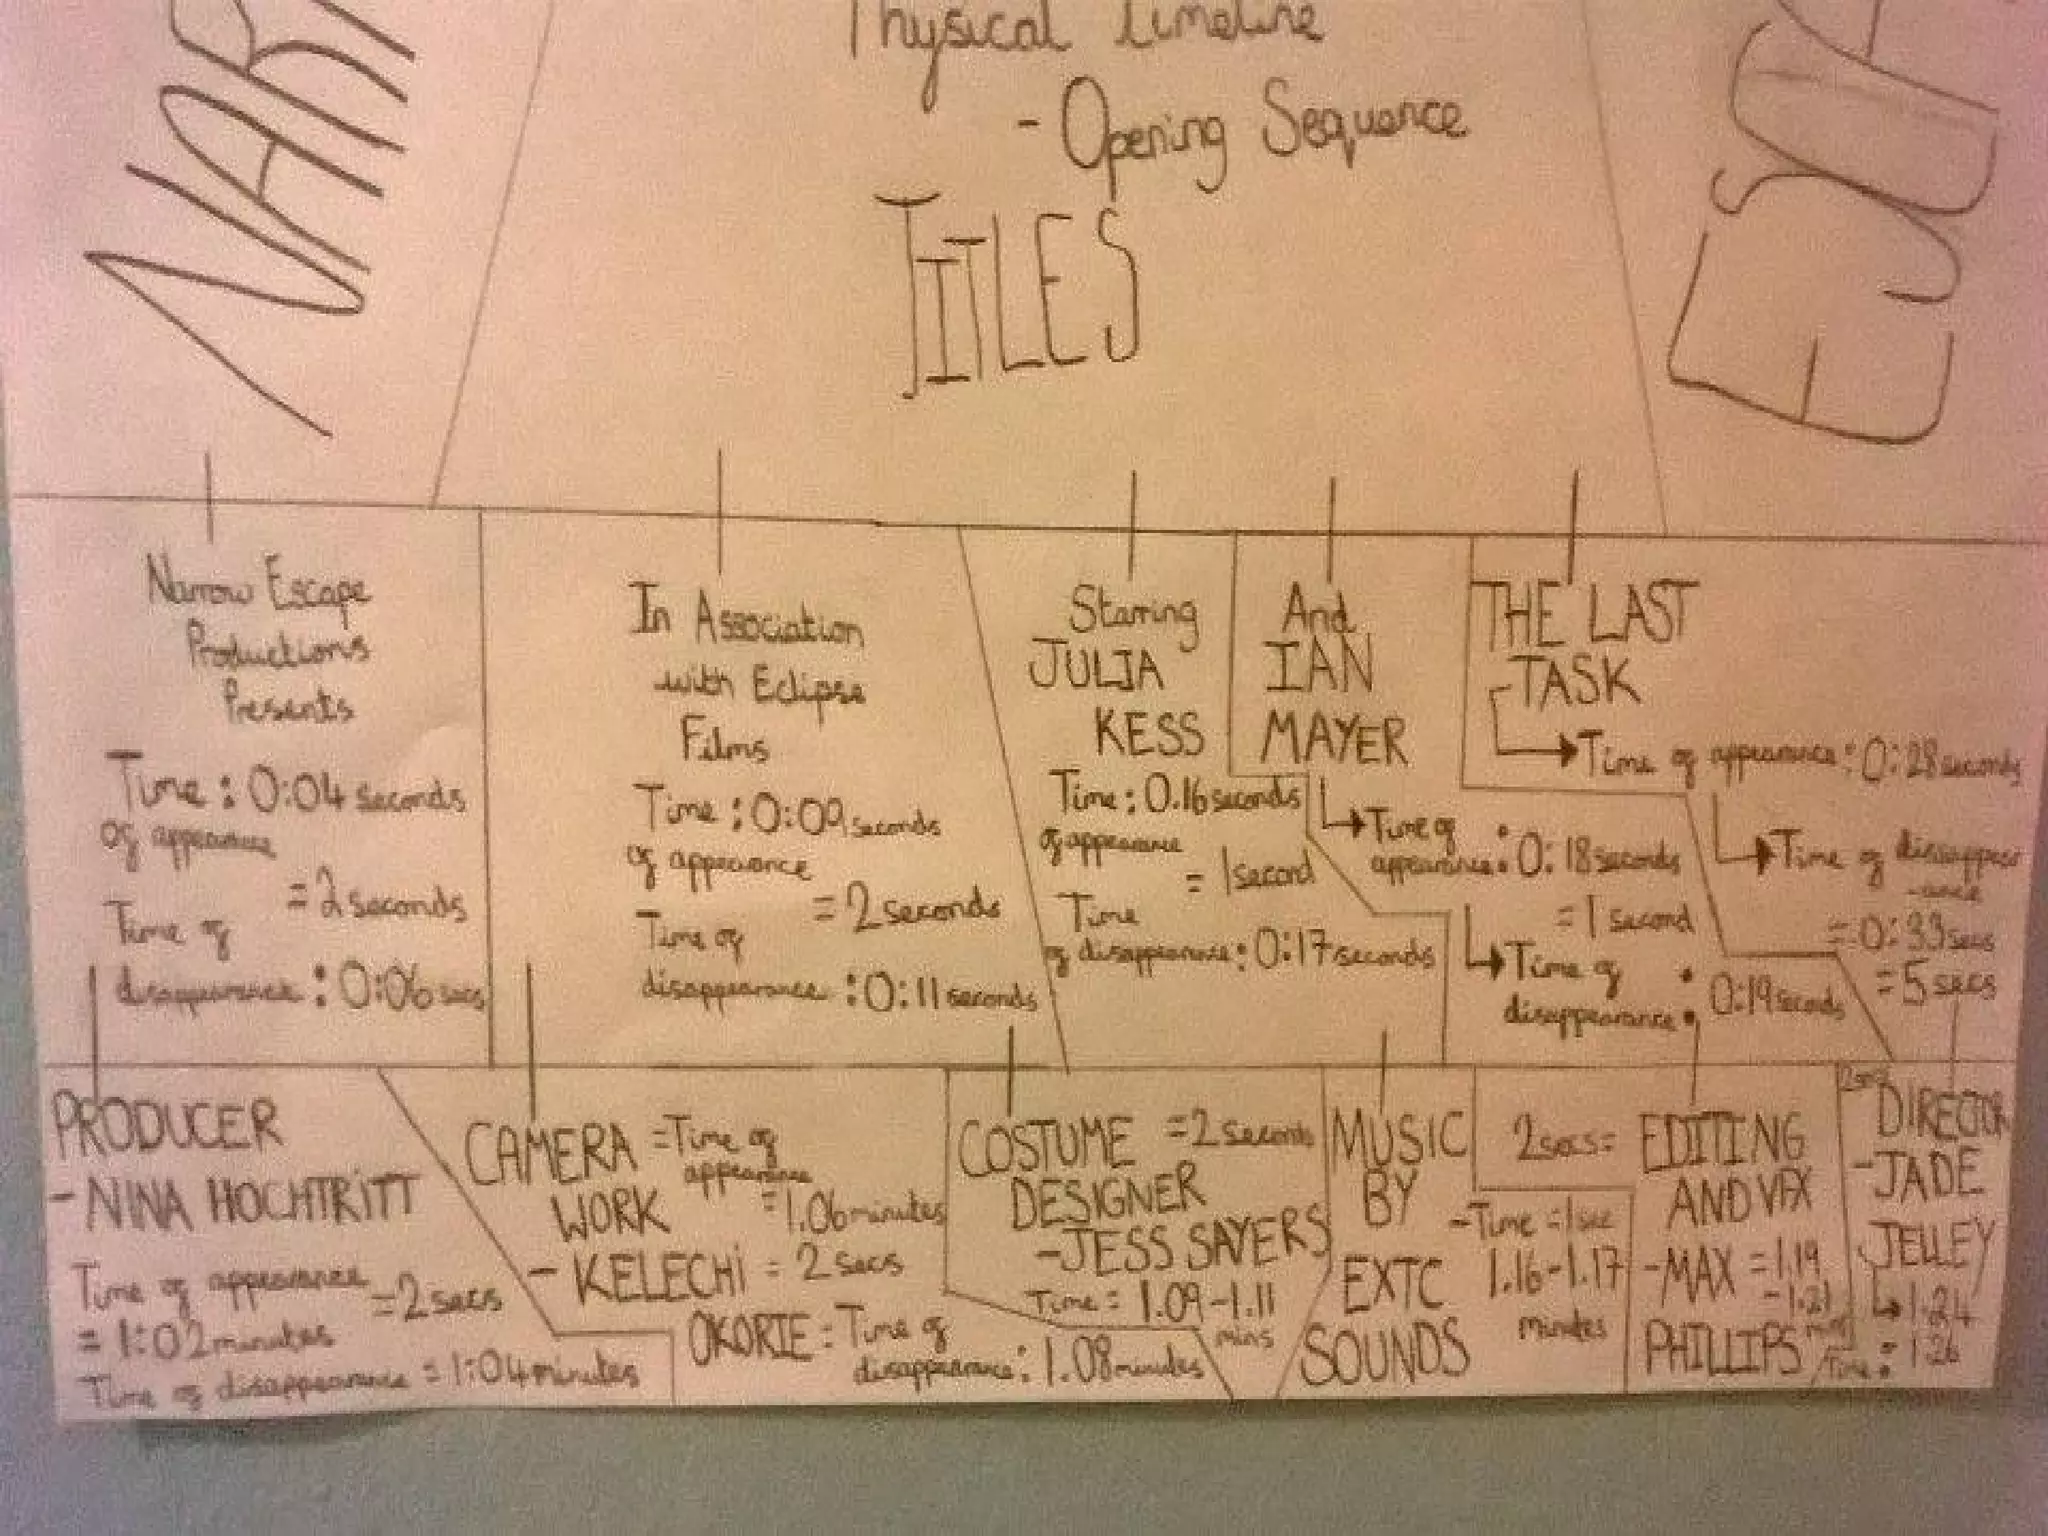 Physical Timeline
- Opening Sequence
TITLES
Narrow Escape
Productions
Presents
Time : 0:04 seconds
of appearance
= 2 seconds
Time of
disappearance : 0:06 secs
In Association
with Eclipse
Films
Time : 0:09 seconds
of appearance
= 2 seconds
Time of
disappearance : 0:11 seconds
Starring
JULIA
KESS
Time : 0.16 seconds
of appearance
= 1 second
Time
of disappearance : 0:17 seconds
And
IAN
MAYER
Time of
appearance : 0:18 seconds
= 1 second
Time of
disappearance : 0:19 seconds
THE LAST
TASK
Time of appearance : 0:28 seconds
Time of disappear
-ance
= 0:33 secs
= 5 secs
PRODUCER
- NINA HOCHTRITT
Time of appearance
= 2 secs
= 1:02 minutes
Time of disappearance = 1:04 minutes
CAMERA = Time of
appearance
WORK = 1.06 minutes
- KELECHI = 2 secs
OKORIE = Time of
disappearance : 1.08 minutes
COSTUME = 2 seconds
DESIGNER
- JESS SAYERS
Time = 1.09-1.11
mins
MUSIC
BY
EXTC
SOUNDS
- Time = 1 sec
1.16-1.17
minutes
2 secs = EDITING
AND VFX
- MAX = 1.19
- 1.21
PHILLIPS mins
2 secs
DIRECTOR
- JADE
JELLEY
1.24
Time : 1.26